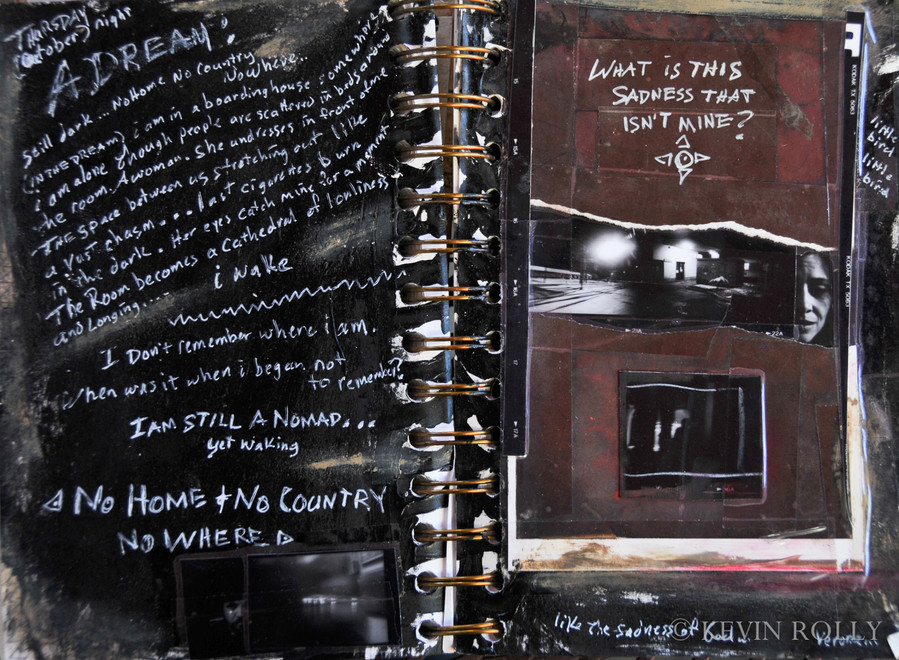 THURSDAY
(October) night
A DREAM:
Still dark...No Home No Country
Nowhere..
(IN THE DREAM) i am in a boarding house somewhere
i am alone though people are scattered in beds around
the room. A woman. She undresses in front of me
THE SPACE between us stretching out like
a vast chasm... last cigarettes burn
in the dark. Her eyes catch mine for a moment
The Room becomes a cathedral of lonliness
and Longing....
i wake
I Don't remember where i am.
When was it when i began not
to remember?
I AM STILL A NOMAD...
yet waking
No HOME + No COUNTRY
NO WHERE
WHAT IS THIS
SADNESS THAT
ISN'T MINE?
KODAK TX 5063
KODAK TX 5063
16A
17
17A
22A
little
bird
little
bird
like the sadness of God...
© KEVIN ROLLY